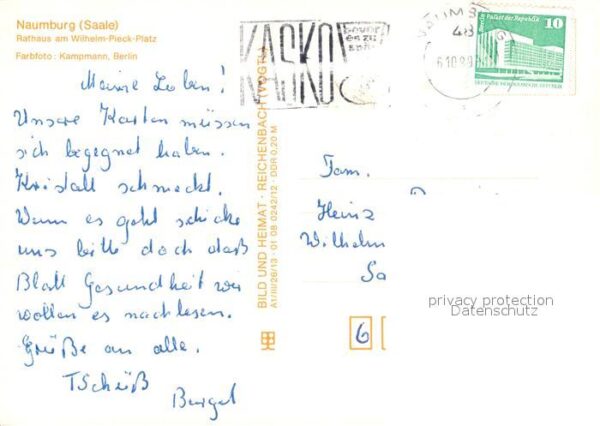 Naumburg (Saale)
Rathaus am Wilhelm-Pieck-Platz
Farbfoto: Kampmann, Berlin
Meine Lieben!
Unsere Karten müssen
sich begegnet haben.
Kristall schmeckt.
Wenn es geht schicke
uns bitte doch daß
Blatt Gesundheit wir
wollen es nachlesen.
Grüße an alle.
TSchüß
Burgel
BILD UND HEIMAT · REICHENBACH (VOGTL)
A1/III/26/13 · 01 08 0242/12 · DDR 0,20 M
KASKO
bevor
es zu
spät
6.10.89
Palast der Republik
10
Fam.
Heinz
Wilhelm
Sa
6
privacy protection
Datenschutz